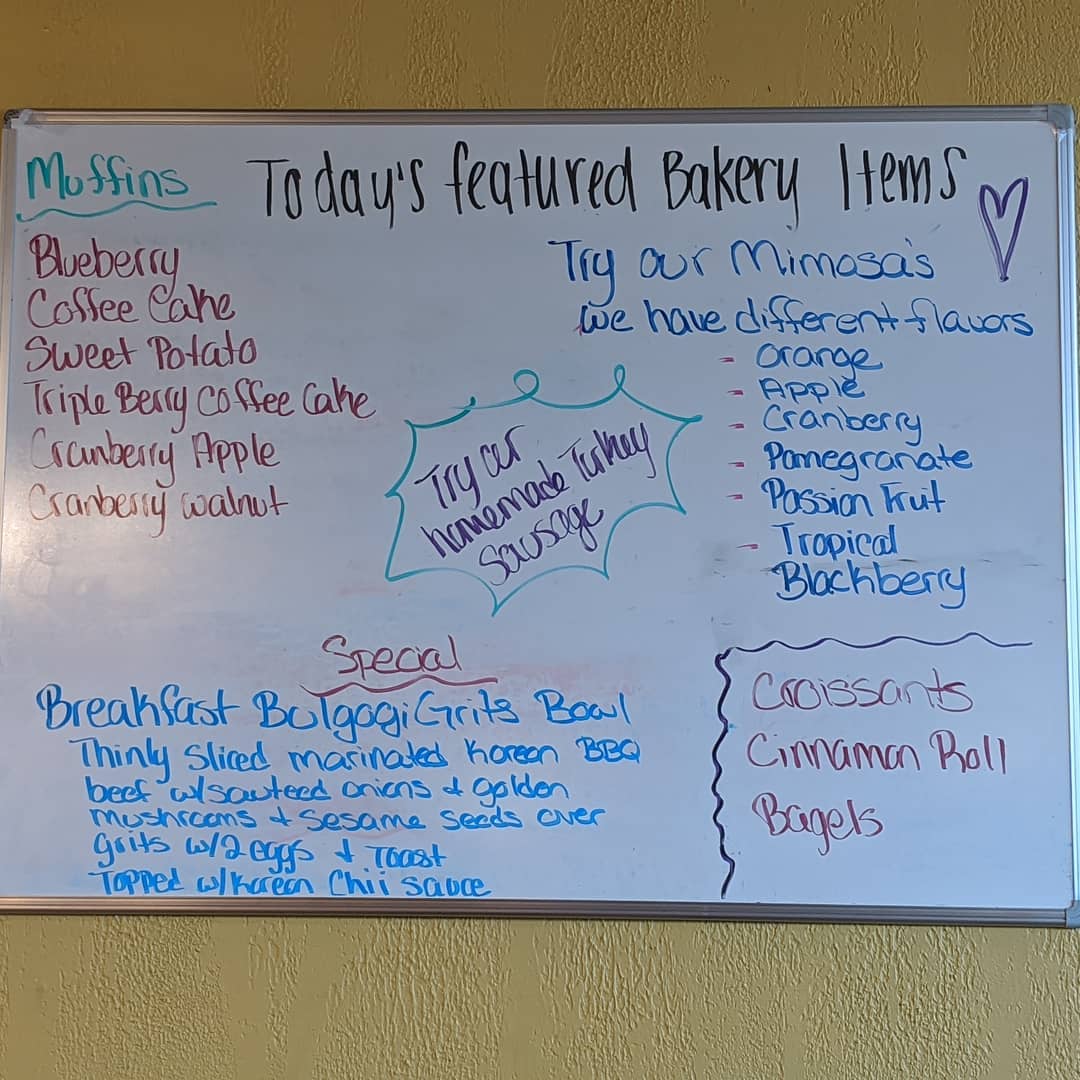 Today's featured Bakery Items
Muffins
Blueberry
Coffee Cake
Sweet Potato
Triple Berry Coffee Cake
Cranberry Apple
Cranberry Walnut
Try our Mimosa's
We have different flavors
- Orange
- Apple
- Cranberry
- Pomegranate
- Passion Fruit
- Tropical
Blackberry
Try our
homemade Turkey
Sausage
Special
Breakfast Bulgogi Grits Bowl
Thinly Sliced marinated Korean BBQ
beef w/sauteed onions & golden
mushrooms & sesame seeds over
grits w/2 eggs & Toast
Topped w/Korean Chii sauce
Croissants
Cinnamon Roll
Bagels